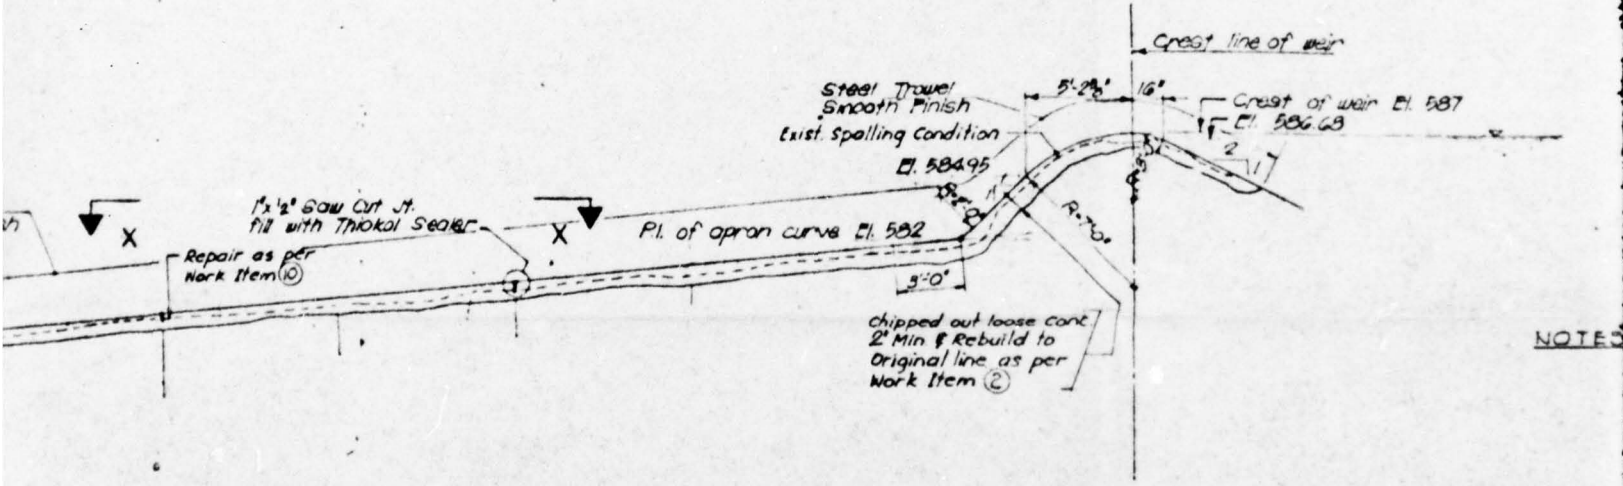 Crest line of weir
Steel Trowel
Smooth Finish
16"
Crest of weir El. 587
El. 586.68
Exist. Spalling Condition
2
1
El. 584.95
1"x ½" Saw Cut Jt.
fill with Thiokol Sealer
X
X
P.I. of apron curve El. 582
R=7'-0"
Repair as per
Work Item 10
3'-0"
Chipped out loose conc.
2" Min & Rebuild to
Original line as per
Work Item 2
NOTES